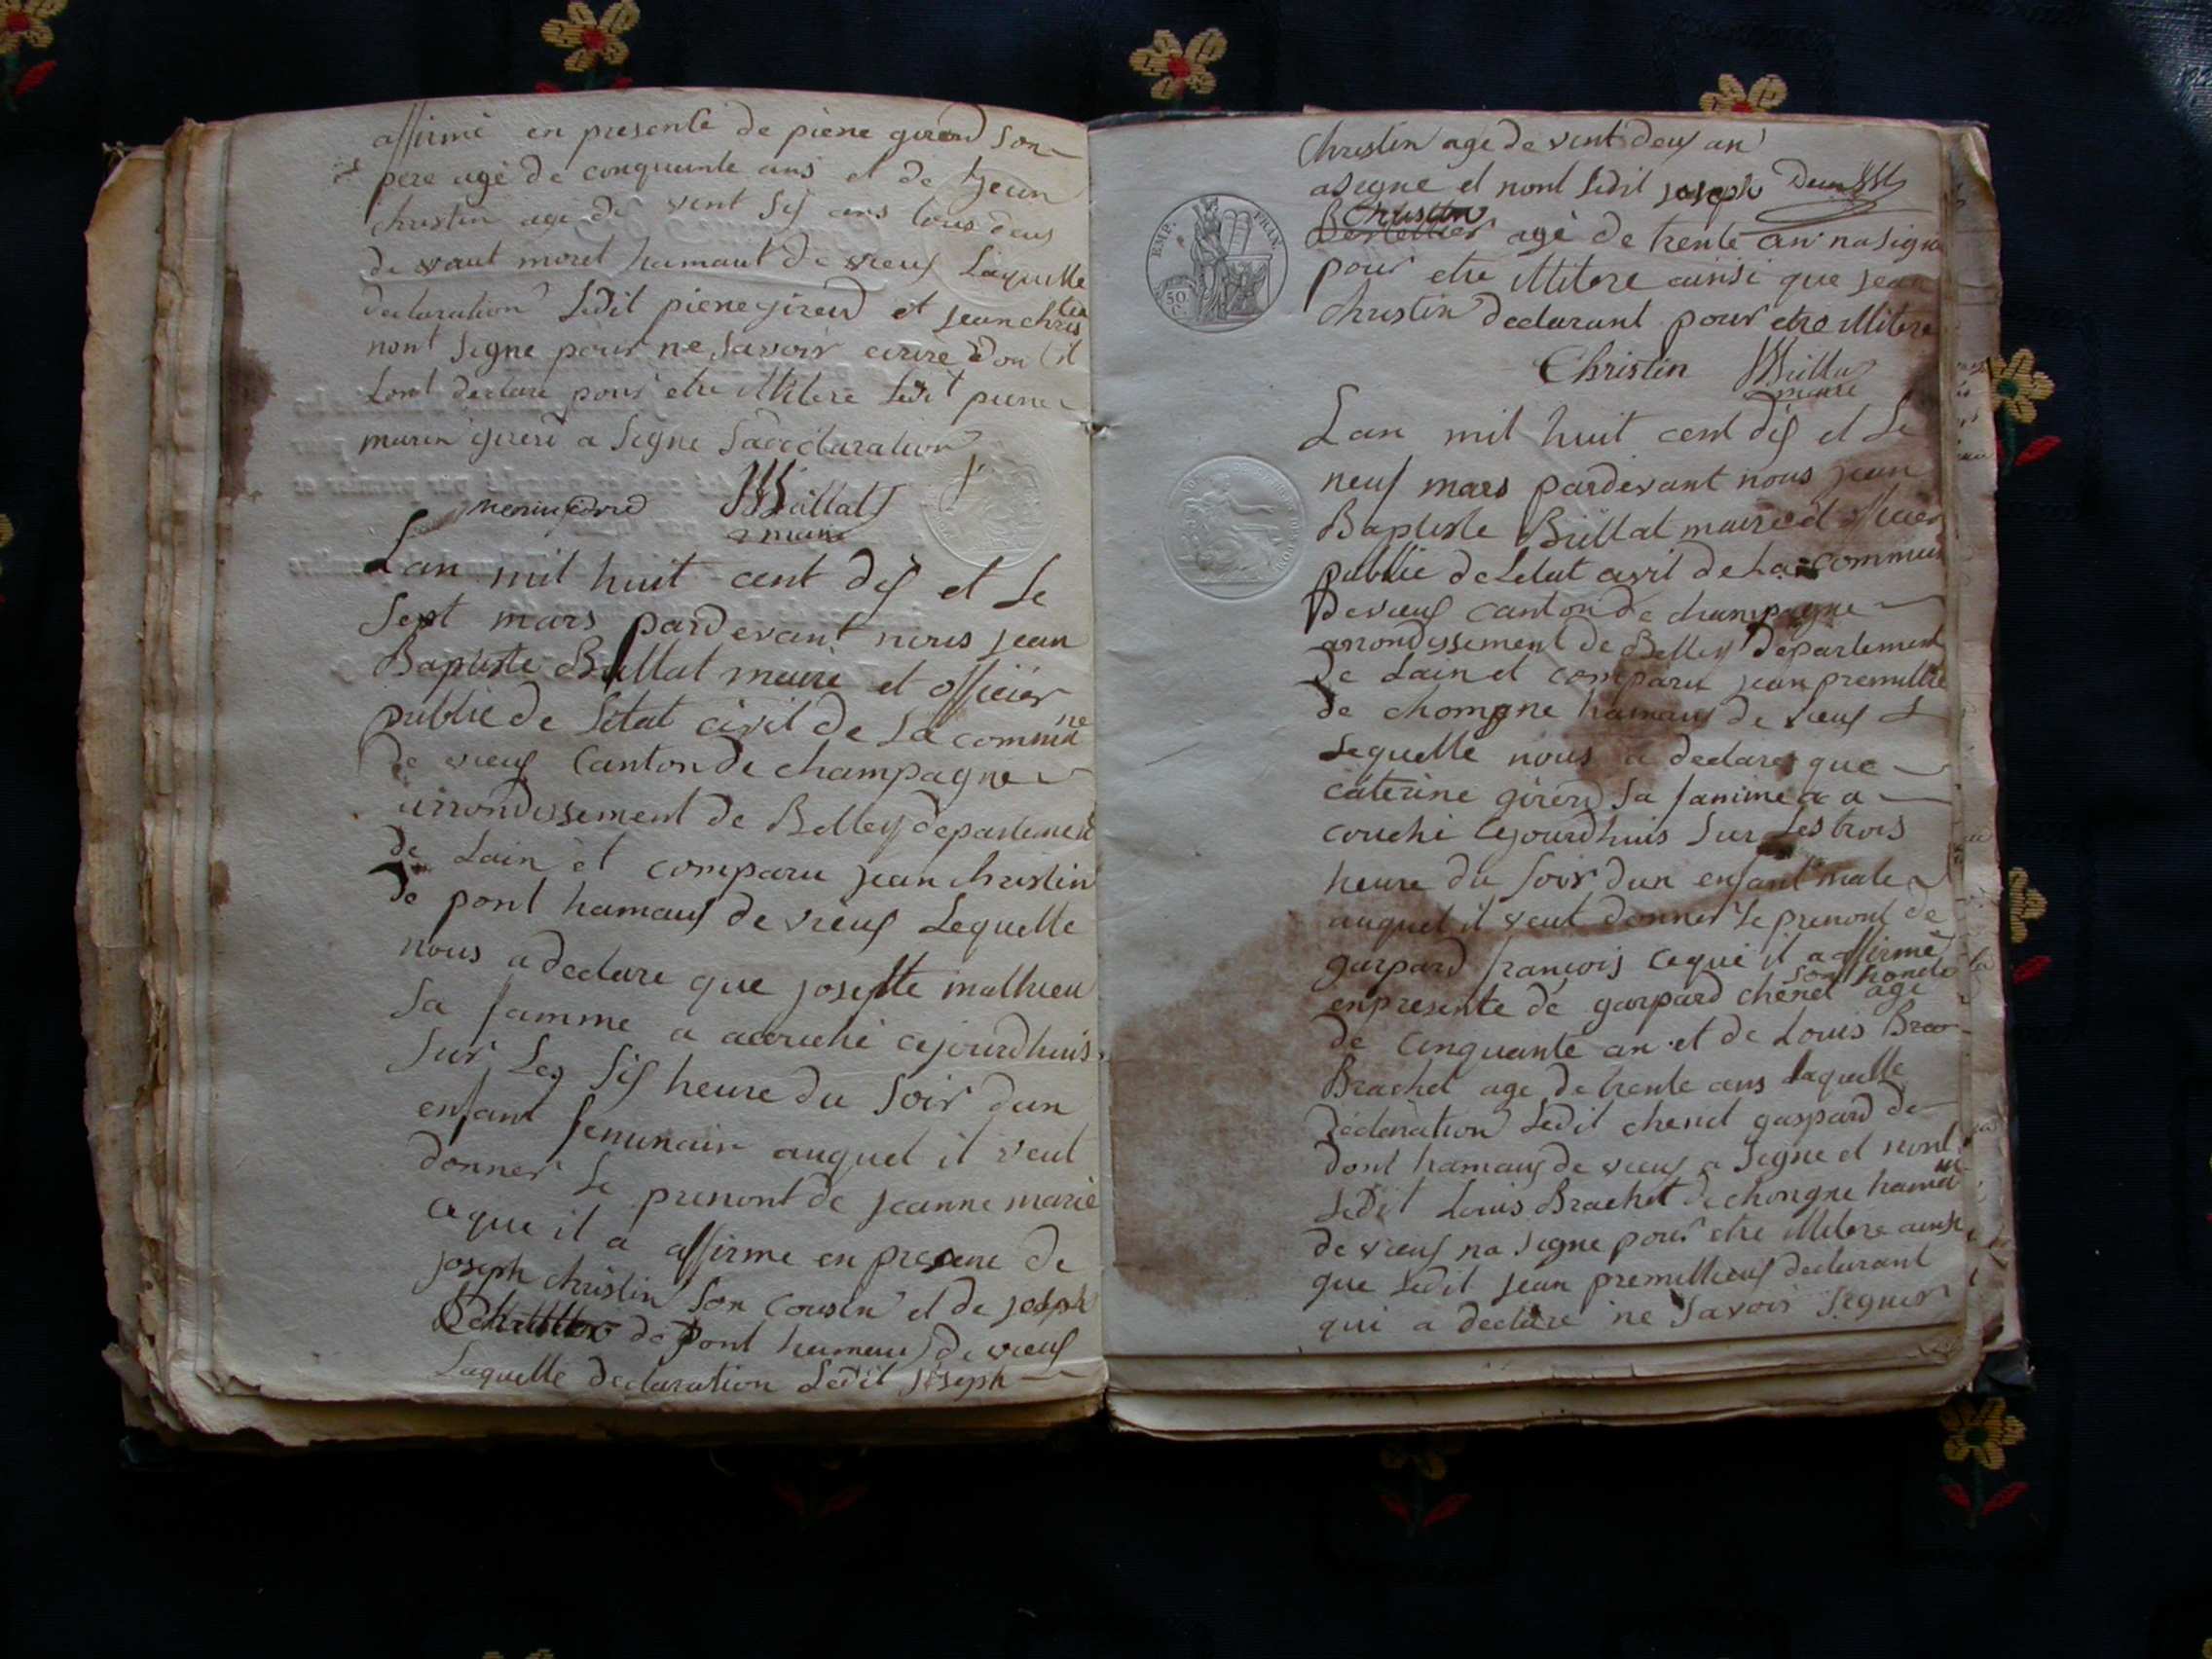 affirmé en presente de piere girerd son
pere agé de conquante ans et de jean
christin agé de vent sis ans tous deus
de vaut moret hamaut de vieus Laquelle
declaration Ledit piere girerd et jean christin
nont Signe pour ne Savoir ecrire dont il
Lont declare pour etre illitere Ledit piere
marin girerd a Signe Sa declaration
Büllat
maire
Lan mil huit cent dis et Le
Sept mars pardevant nous jean
Baptiste Büllat maire et officier
public de Letat civil de La commune
de vieus Canton de champagne
arrondissement de Belley departement
de Lain et comparu jean christin
de pont hamaus de vieus Lequelle
nous a declare que josephte mathieu
Sa famme a accouché cejourdhuis
Sur Les Sis heure du Soir dun
enfant feminain auquel il veut
donner Le prenont de jeanne marie
ceque il a affirme en presene de
joseph christin Son cousin et de joseph
de pont hameaus de vieus
Laquelle declaration Ledit joseph
Christin age de vent deus an
a Segné et nont Ledit joseph
christin
Bertellier agé de trente an na Signe
pour etre illitere ainsi que jean
christin declarant pour etre illitere
Christin Büllat
maire
EMP. FRAN.
50 C.
Lan mil huit cent dis et Le
neuf mars pardevant nous jean
Baptiste Büllat maire et officier
public de Letat civil de La commun
de vieus canton de champagne
arrondissement de Belley departement
de Lain et comparu jean premillie
de chomgne hamaus de vieus
Lequelle nous a declare que
caterine girerd Sa famme a a
couche cejourdhuis Sur Les trois
heure du Soir dun enfant male
auquel il veut donner Le prenont de
garpard francois ceque il a affirmé
en presente de garpard chenet Son age
de Cinquante an et de Louis Brac
Brachet age de trente ans Laquelle
declaration Ledit chenet gaspard de
dont hamaus de vieus a Signe et nont
Ledit Louis Brachet de chongne hamau
de vieus na Signe pour etre illitere ainsi
que Ledit jean premillieus declarant
qui a declare ne Savoir Segner